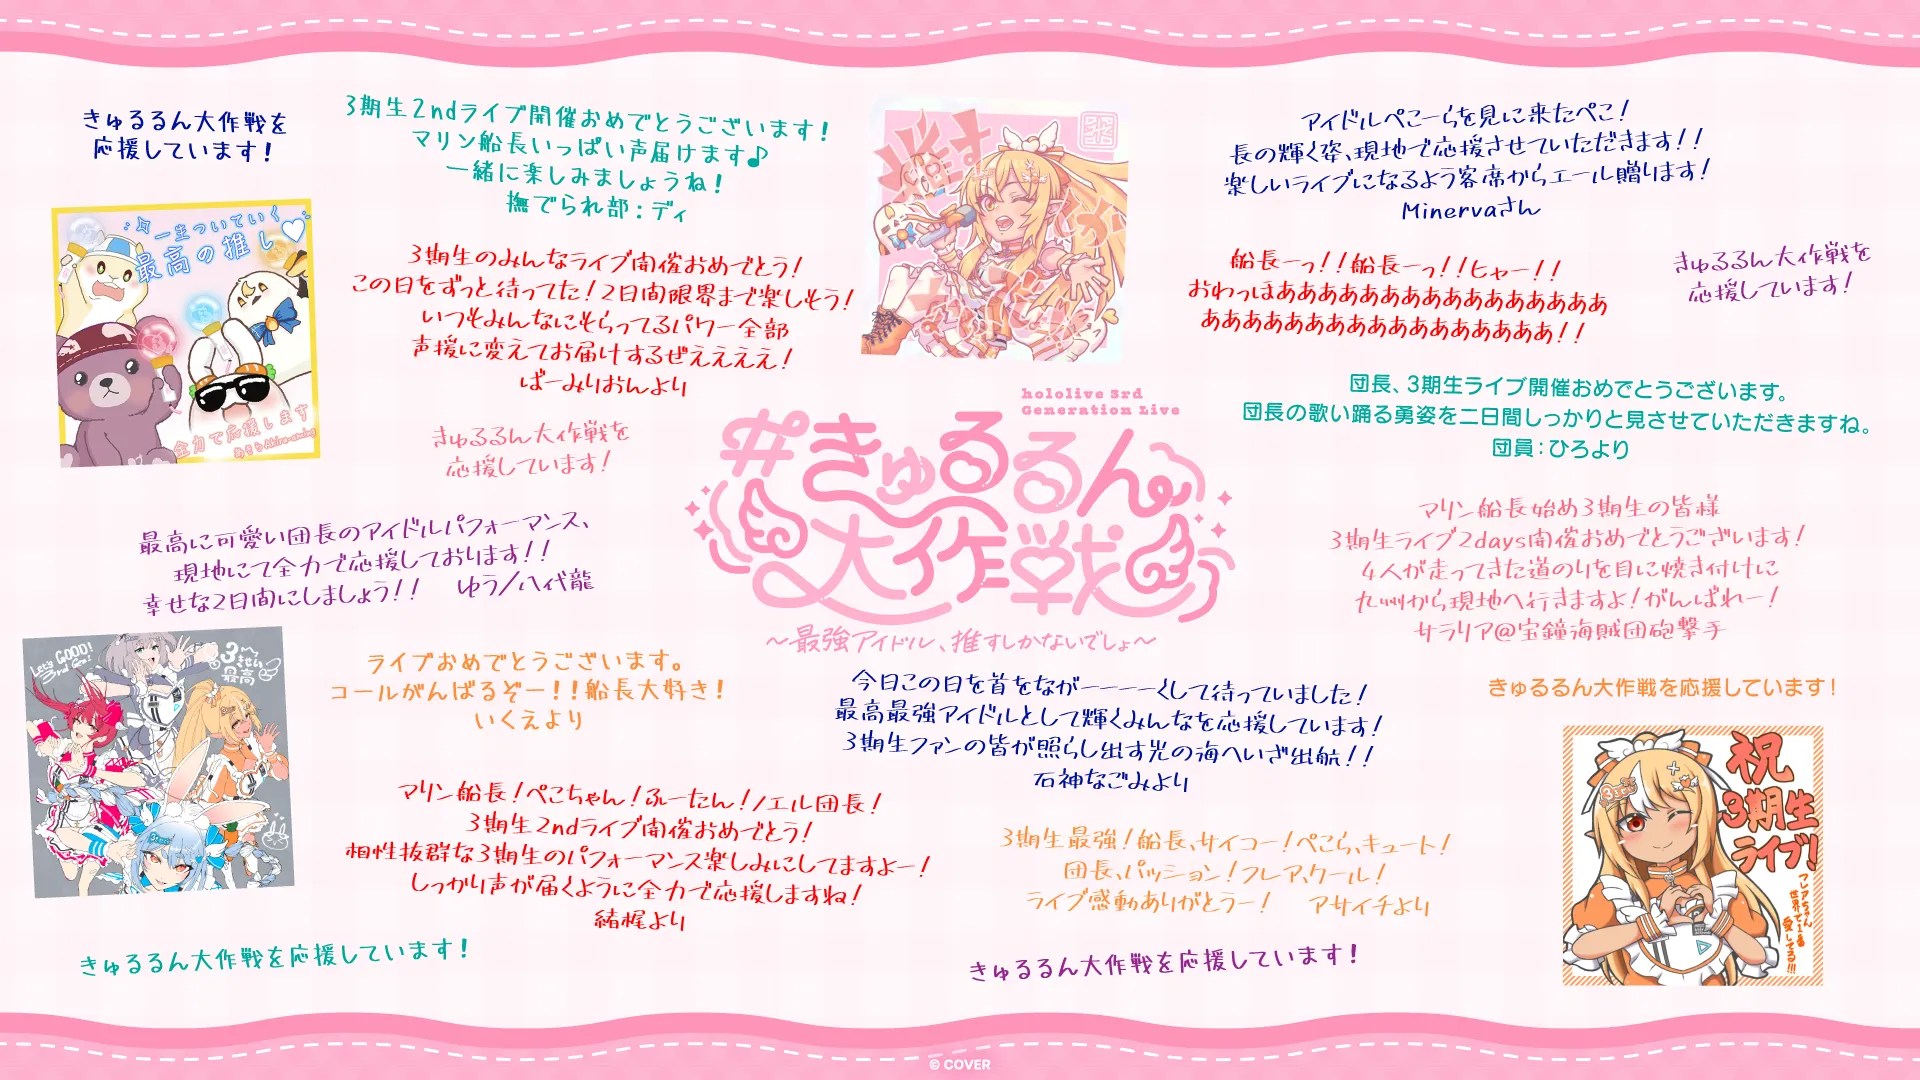 きゅるるん大作戦を
応援しています！
3期生2ndライブ開催おめでとうございます！
マリン船長いっぱい声届けます♪
一緒に楽しみましょうね！
撫でられ部：ディ
一生ついていく
最高の推し♡
全力で応援します
あきら Akira-aming
3期生のみんなライブ開催おめでとう！
この日をずっと待ってた！2日間限界まで楽しもう！
いつもみんなにもらってるパワー全部
声援に変えてお届けするぜええええ！
ばーみりおんより
きゅるるん大作戦を
応援しています！
アイドルぺこーらを見に来たぺこ！
長の輝く姿、現地で応援させていただきます！！
楽しいライブになるよう客席からエール贈ります！
Minervaさん
船長ーっ！！船長ーっ！！ヒャー！！
おわっほああああああああああああああああああ
ああああああああああああああああああ！！
きゅるるん大作戦を
応援しています！
団長、3期生ライブ開催おめでとうございます。
団長の歌い踊る勇姿を二日間しっかりと見させていただきますね。
団員：ひろより
hololive 3rd
Generation Live
#きゅるるん
大作戦
～最強アイドル、推すしかないでしょ～
最高に可愛い団長のアイドルパフォーマンス、
現地にて全力で応援しております！！
幸せな2日間にしましょう！！　ゆう／八代龍
マリン船長始め3期生の皆様
3期生ライブ2days開催おめでとうございます！
4人が走ってきた道のりを目に焼き付けに
九州から現地へ行きますよ！がんばれー！
サラリア@宝鐘海賊団砲撃手
Let's GOOO!
3rd Gen!
3きせい
最高
ライブおめでとうございます。
コールがんばるぞー！！船長大好き！
いくえより
今日この日を首をなが一一一一くして待っていました！
最高最強アイドルとして輝くみんなを応援しています！
3期生ファンの皆が照らし出す光の海へいざ出航！！
石神なごみより
きゅるるん大作戦を応援しています！
祝
3期生
ライブ！
フレアちゃん
世界で1番
愛してる!!!
マリン船長！ぺこちゃん！ふーたん！ノエル団長！
3期生2ndライブ開催おめでとう！
相性抜群な3期生のパフォーマンス楽しみにしてますよー！
しっかり声が届くように全力で応援しますね！
緒梶より
3期生最強！船長、サイコー！ぺこら、キュート！
団長、パッション！フレア、クール！
ライブ感動ありがとうー！　アサイチより
きゅるるん大作戦を応援しています！
きゅるるん大作戦を応援しています！
© COVER